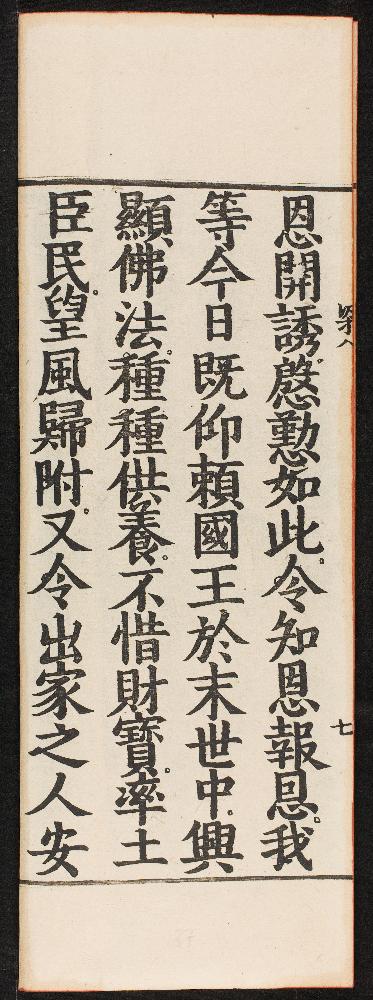 恩開誘慇懃如此。令知恩報恩。我
等今日既仰賴國王於末世中。興
顯佛法。種種供養。不惜財寶。率土
臣民。望風歸附。又令出家之人安
七